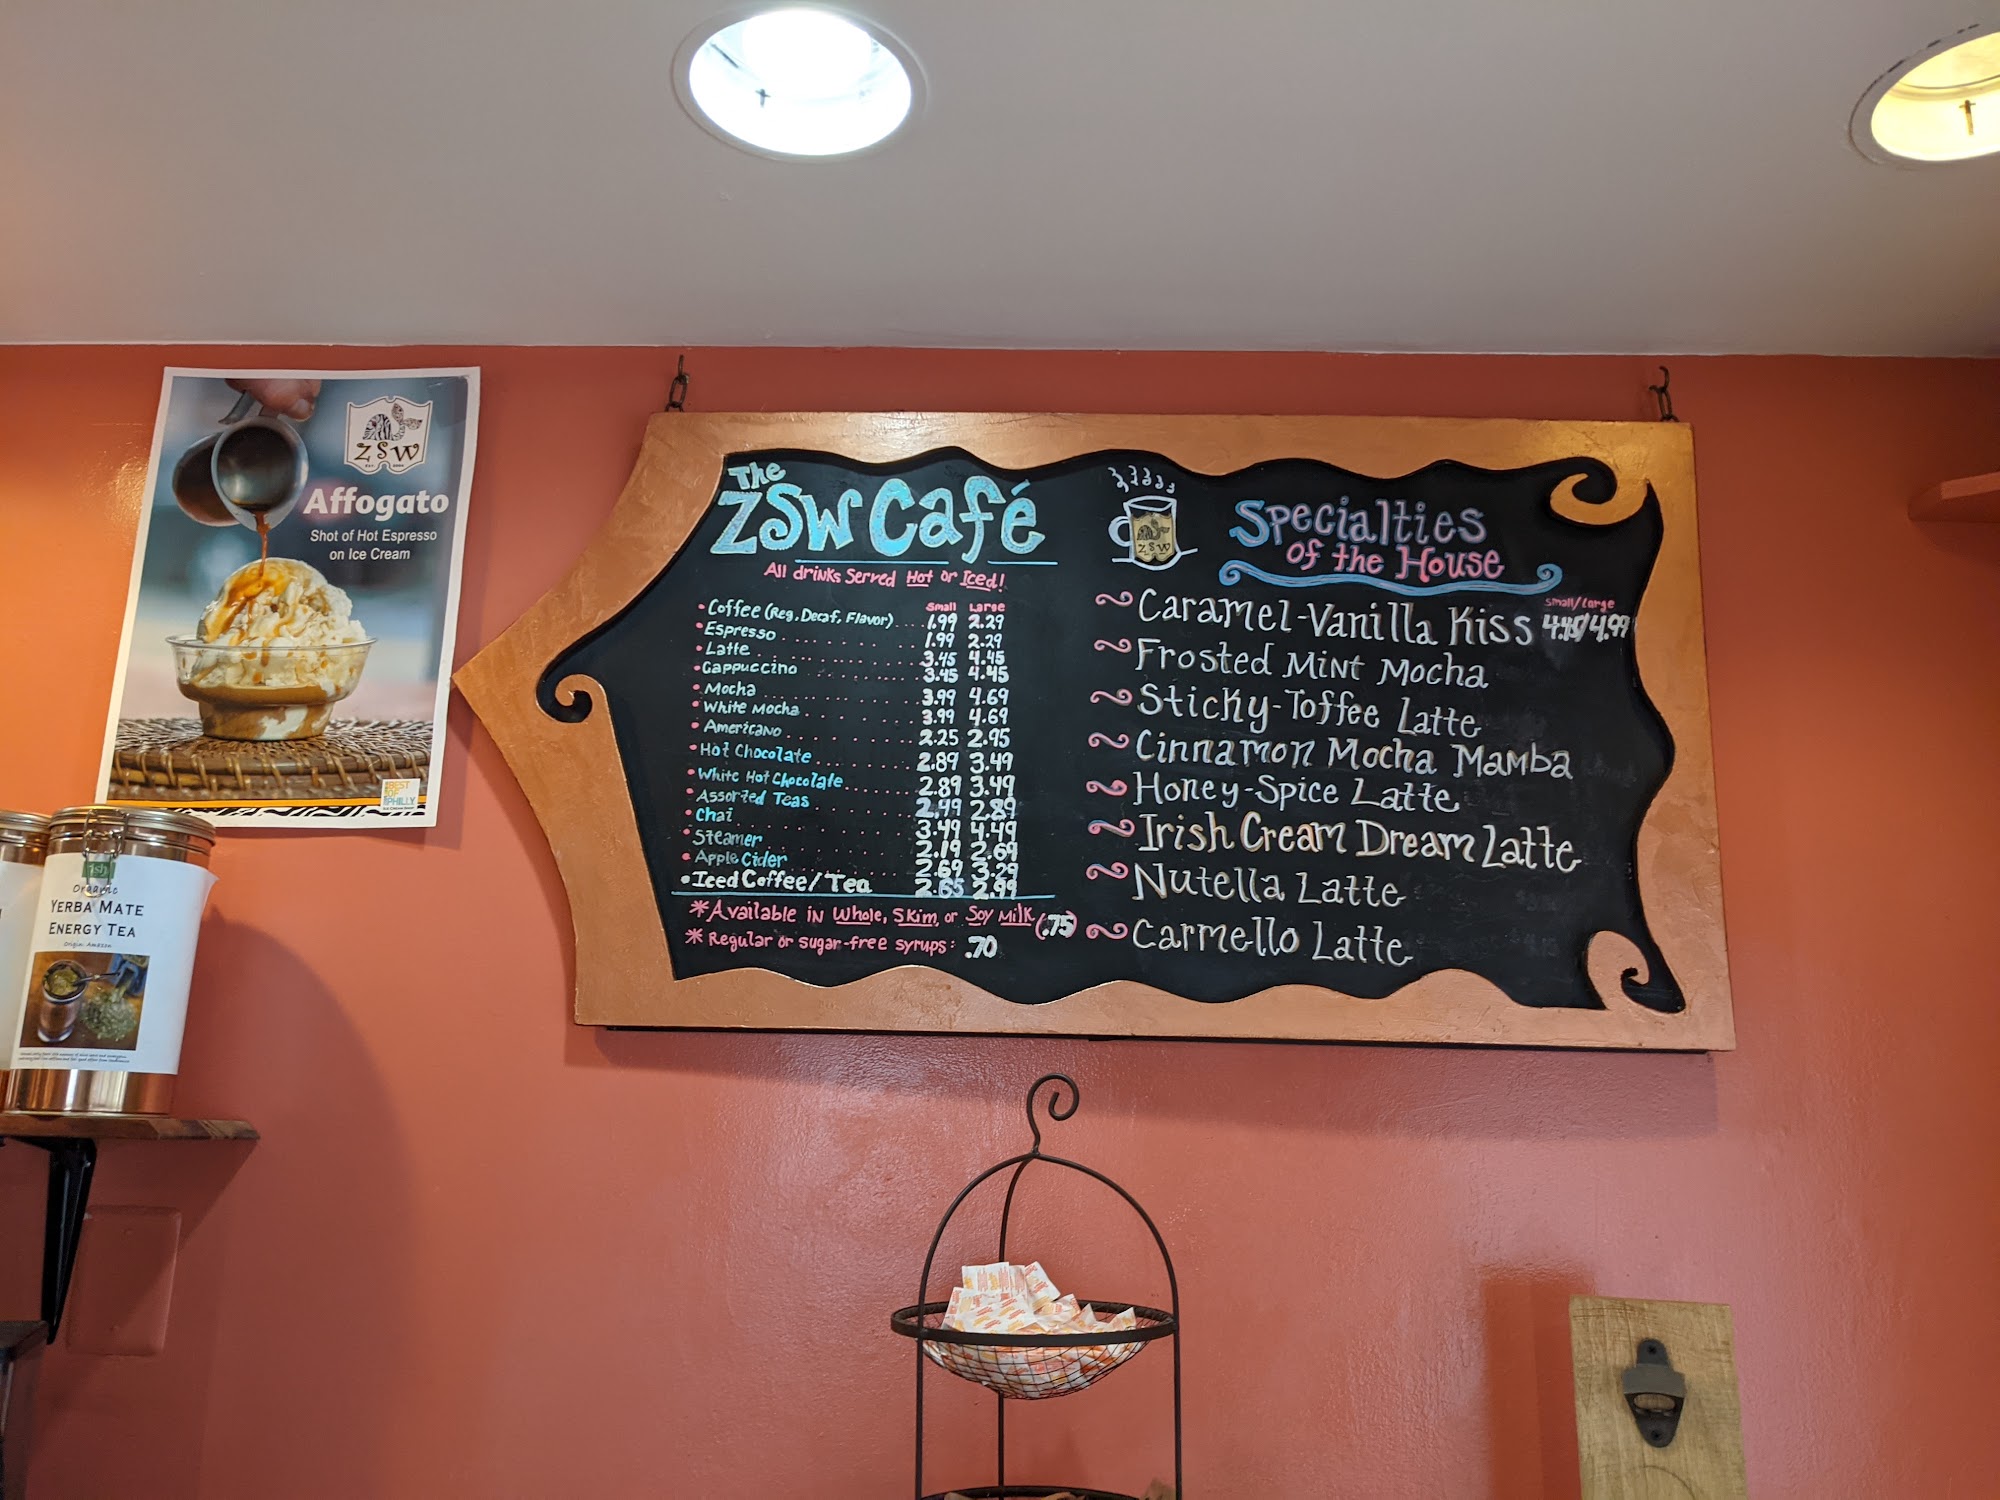 ZSW
EST. 2004
Affogato
Shot of Hot Espresso
on Ice Cream
BEST
OF
PHILLY
ish
Organic
YERBA MATE
ENERGY TEA
Origin: Amazon
The
ZSW Café
All drinks Served Hot or Iced!
Small Large
• Coffee (Reg, Decaf, Flavor).... 1.99 2.29
• Espresso ............ 1.99 2.29
• Latte ............ 3.45 4.45
• Cappuccino ............ 3.45 4.45
• Mocha ............ 3.99 4.69
• White Mocha ............ 3.99 4.69
• Americano ............ 2.25 2.95
• Hot Chocolate ............ 2.89 3.49
• White Hot Chocolate ........ 2.89 3.49
• Assorted Teas ............ 2.49 2.89
• Chai ............ 3.49 4.49
• Steamer ............ 2.19 2.69
• Apple Cider ............ 2.69 3.29
• Iced Coffee/Tea 2.65 2.99
* Available in Whole, Skim, or Soy Milk (.75)
* Regular or sugar-free syrups: .70
ZSW
Specialties
of the House
small/large
Caramel-Vanilla Kiss 4.45/4.99
Frosted Mint Mocha
Sticky-Toffee Latte
Cinnamon Mocha Mamba
Honey-Spice Latte
Irish Cream Dream Latte
Nutella Latte
Carmello Latte